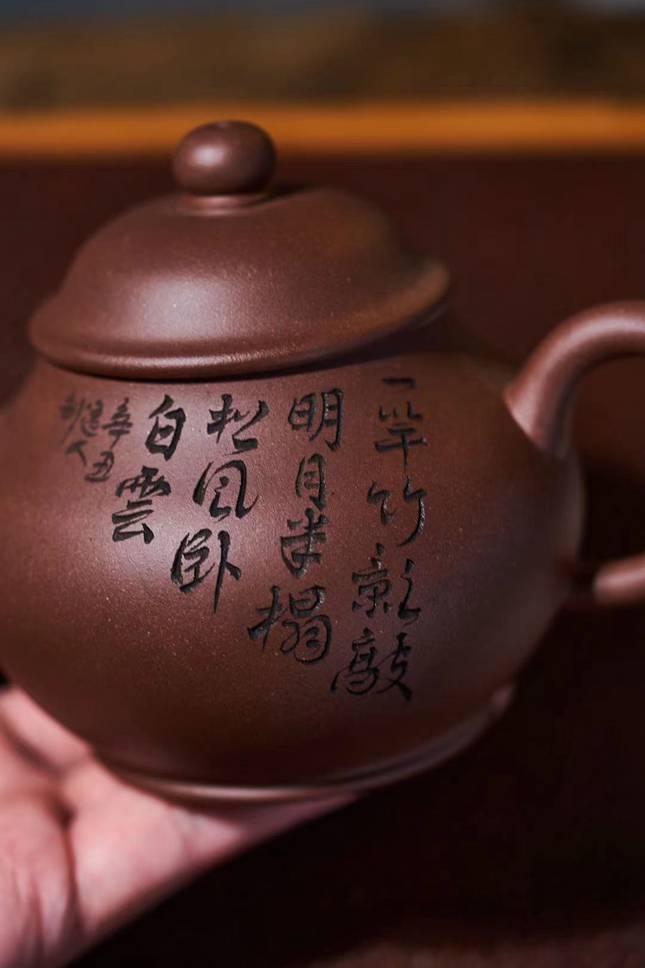 一竿竹影敲
明月半榻
松风卧
白雲
辛丑
道人